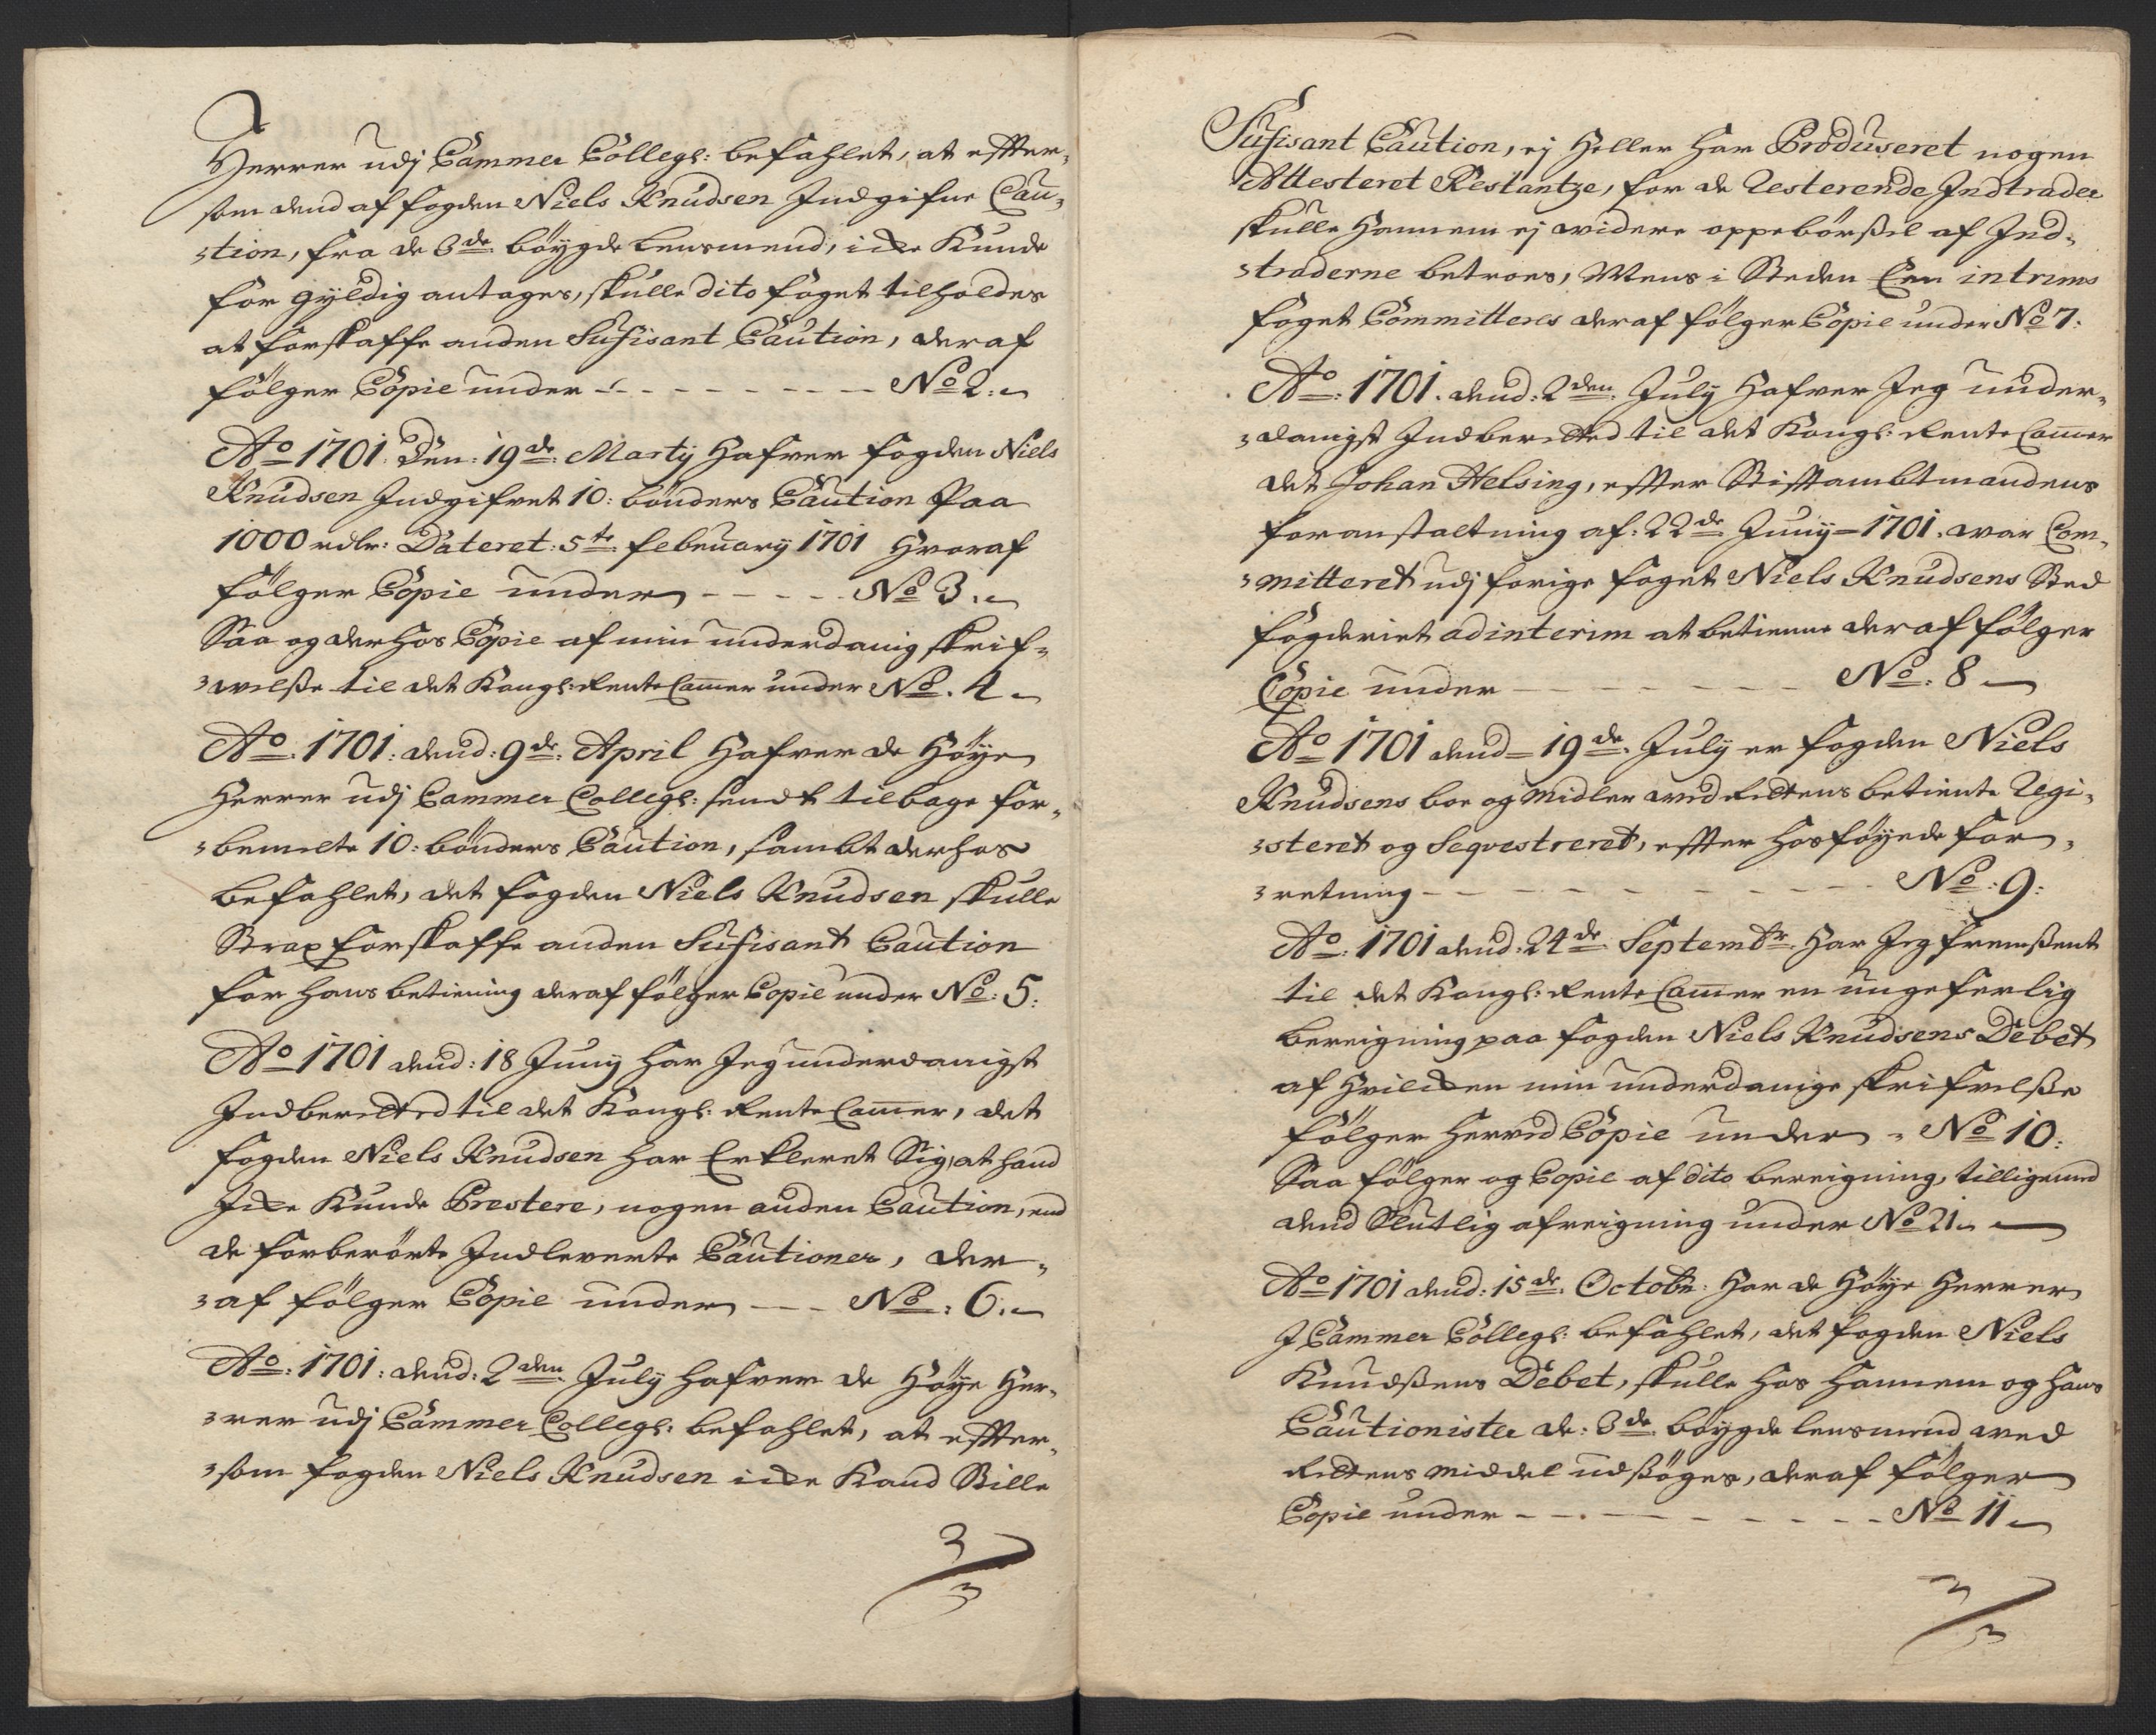 Herrer udj Cammer Collegh: befahlet, at effter-
som dend af fogden Niels Knudsen Indgifne Cau-
-tion, fra de 3de böygde lensmend, icke Kunde
for gyldig antages, skulle dito foget tilholdes
at forskaffe anden Sufisant Caution, deraf
fölger Copie under - - - - - - - - No 2:
Ao 1701. Den: 19de: Martij Hafver fogden Niels
Knudsen Indgifvet 10: bönders Caution Paa
1000 rdlr: Dateret: 5te: februarij 1701 Hvoraf
fölger Copie under - - - - - No 3:
Saa og derhos Copie af min underdanig skrif-
-velße til det Kongl: Rente Camer under No. 4
Ao. 1701: dend: 9de: April Hafver de Höye
Herrer udj Cammer Collegh: sendt tilbage for-
-bemelte 10: bönders Caution, sambt derhos
befahlet, det fogden Niels Knudsen skulle
Strax forskaffe anden Sufisant Caution
for hans betiening deraf fölger Copie under No: 5:
Ao 1701 dend: 18 Junij har Jeg underdanigst
Indberetted til det Kongl: Rente Camer, det
fogden Niels Knudsen har Erkleret Sig, at hand
Icke Kunde Prestere, nogen anden Caution, end
de forberörte Indleverte Cautioner, der-
-af fölger Copie under - - - No: 6:
Ao: 1701: dend: 2den July hafver de Höye Her-
-rer udj Cammer Collegh: befahlet, at effter-
-som fogden Niels Knudsen icke Kand Stille
Sufisant Caution, ej Heller har Produseret nogen
Attesteret Restantze, for de Resterende Indtrader
skulle Hannem ej widere oppebörßel af Ind-
-traderne betroes, Mens i Steden Een intrims
foget Committeres deraf fölger Copie under No 7:
Ao: 1701. dend: 2den. July Hafver Jeg under-
-danigst Indberetted til det Kongl: Rente Camer
det Johan Helsing, effter Stifftambtmandens
foranstaltning af: 22de Junij = 1701. war Com-
-mitteret udj forige foget Niels Knudsens Sted
fogderiet ad interim at betienne deraf fölger
Copie under - - - - - - - No: 8
Ao 1701 dend = 19de. July er fogden Niels
Knudsens boe og Midler wed Rettens betiente Regi-
-steret og Seqvestreret, effter hosföyede for-
-retning - - - - - - - - - - No: 9:
Ao: 1701 dend: 24de Septembr. Har Jeg fremßent
til det Kongl: Rente Camer en ungeferlig
bereigning paa fogden Niels Knudsens Debet
af Hvilcken min underdanige skrifvelße
fölger herved Copie under - No 10:
Saa fölger og Copie af dito bereigning, tilligemed
dend Slutlig afreigning under No 21
Ao 1701 dend: 15de. Octobr: Har de Höye Herrer
J Cammer Collegh: befahlet, det fogden Niels
Knudßens Debet, skulle hos hannem og hans
Cautionister de: 3de. böygde lensmend wed
Rettens middel udßöges, deraf fölger
Copie under - - - - - - - - - No 11